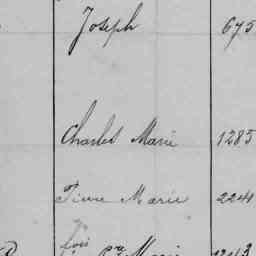 Joseph 675
Charles Marie 1285
Pierre Marie 2241
Marie